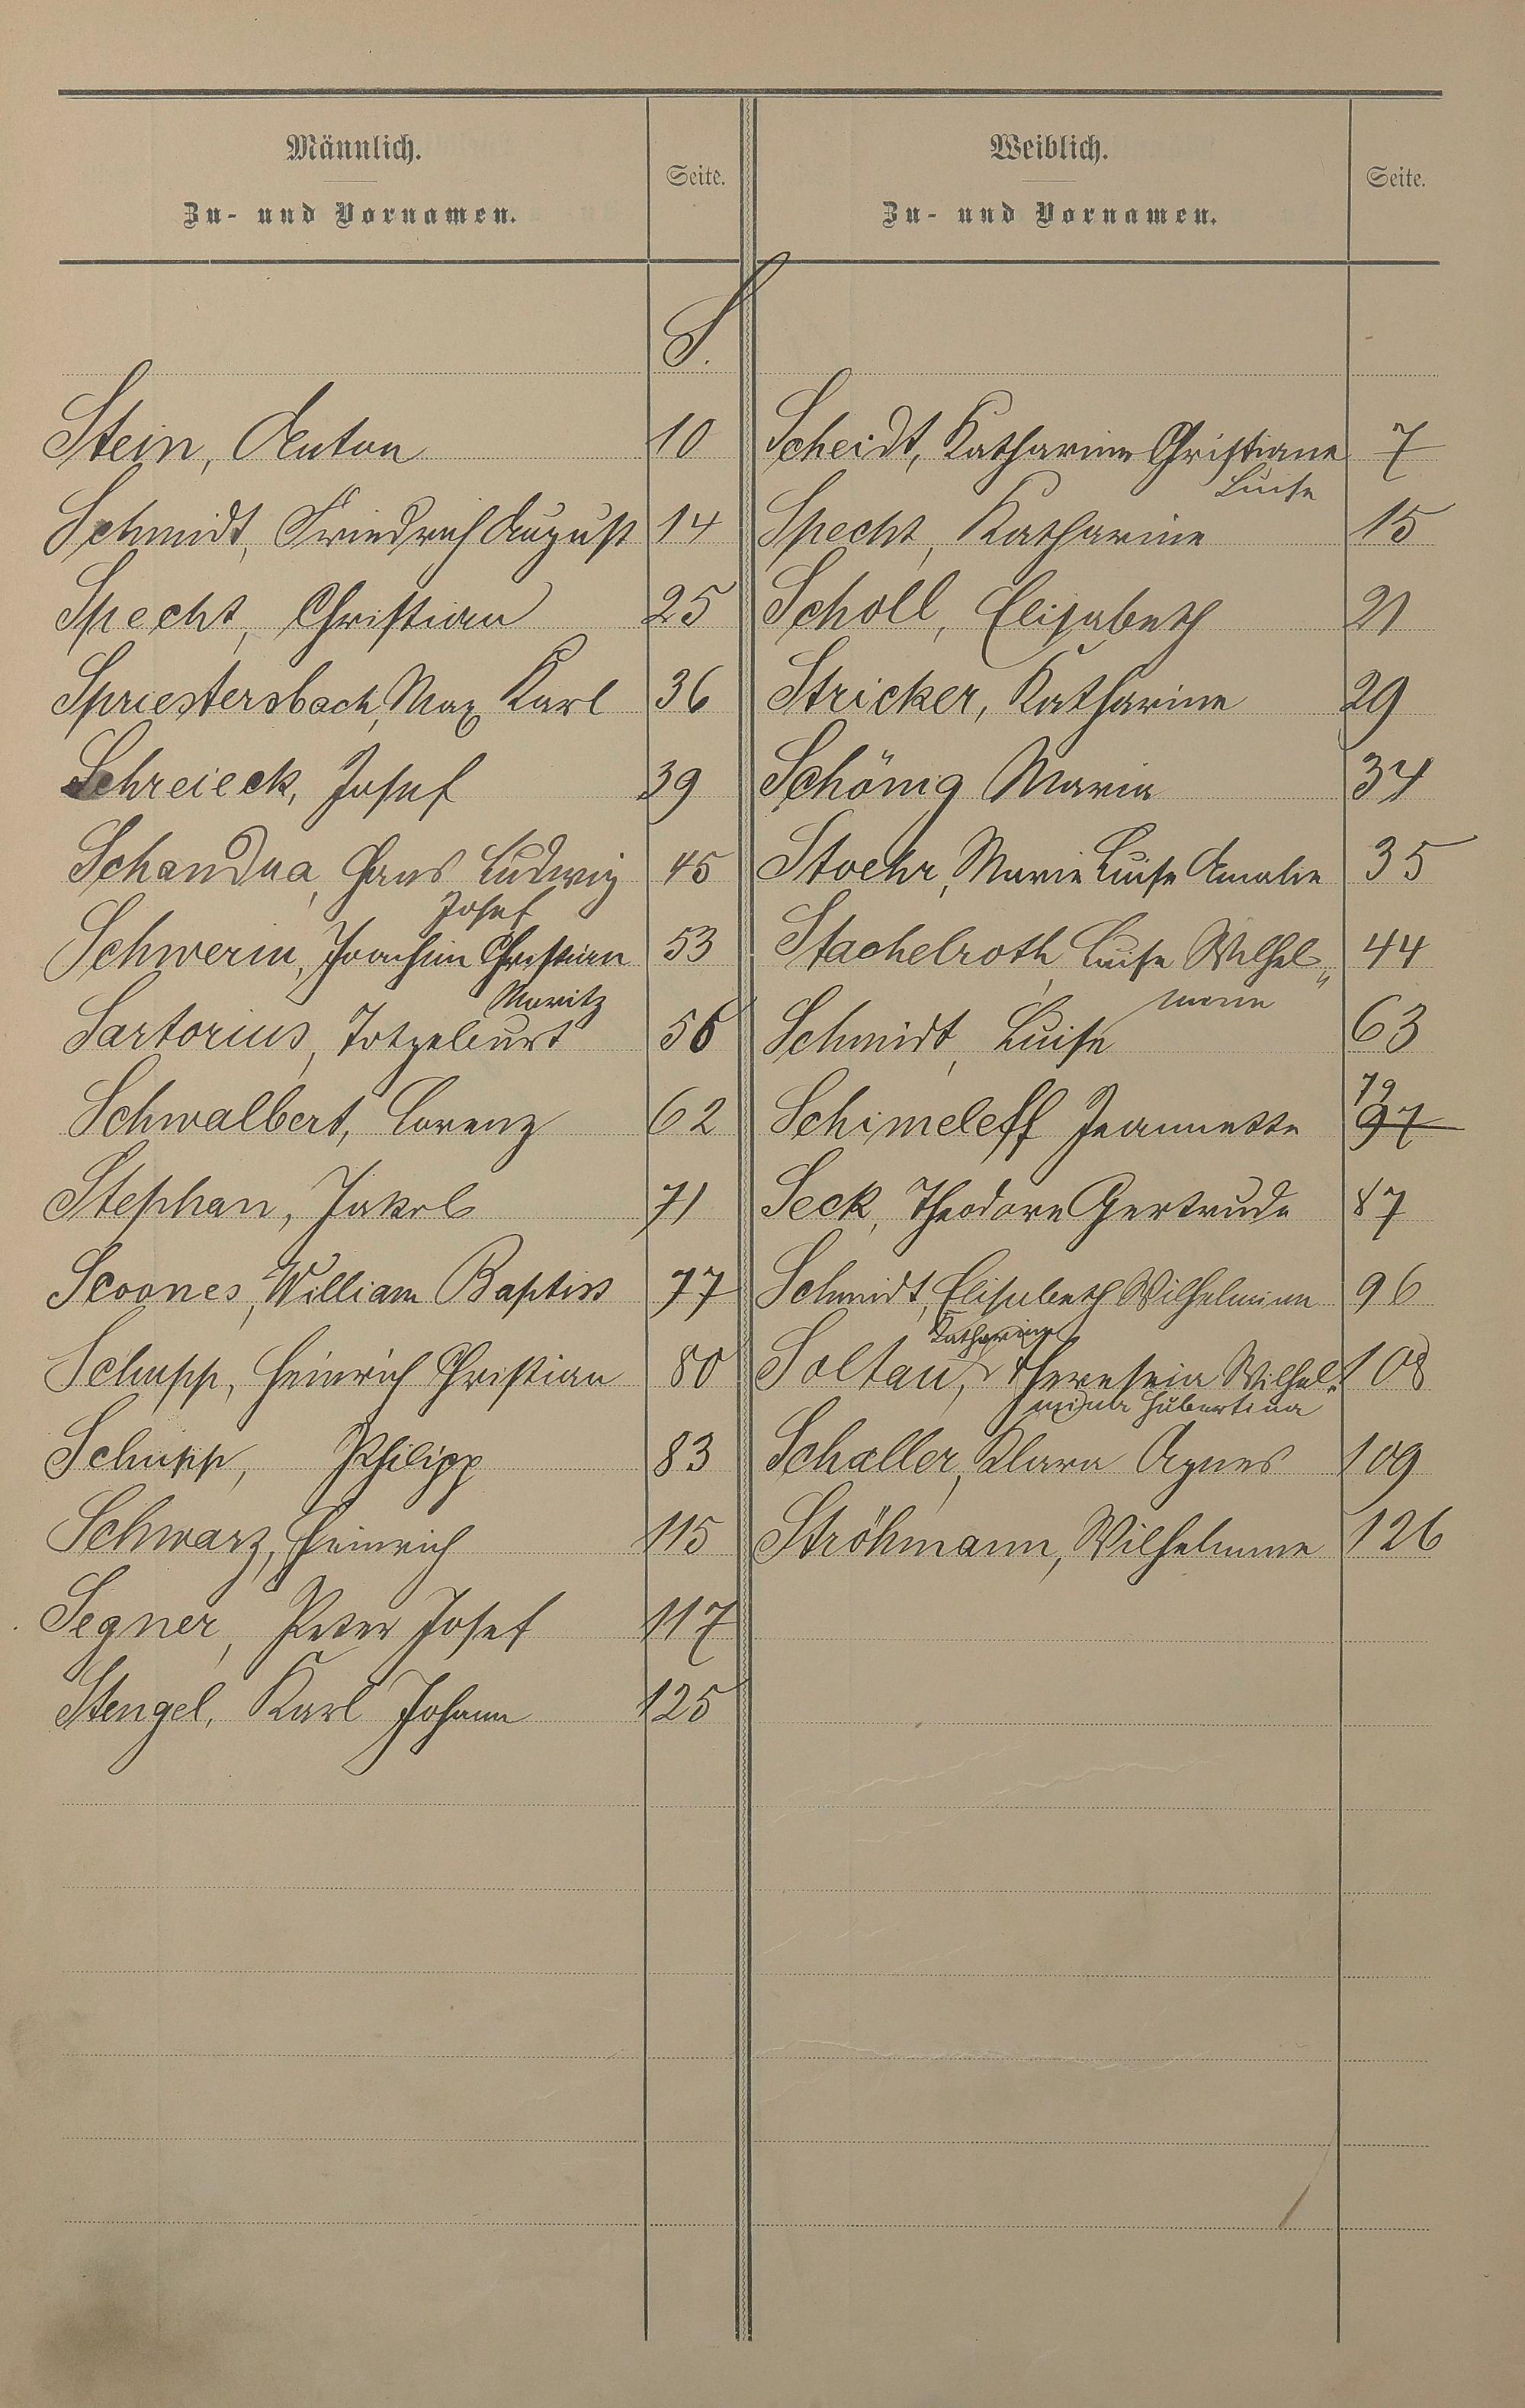 Männlich.
Zu- und Vornamen.
Seite.
Weiblich.
Zu- und Vornamen.
Seite.
S.
Stein, Anton 10
Schmidt, Friedrich August 14
Specht, Christian 25
Spriestersbach, Max Karl 36
Schreieck, Josef 39
Schandua, Hans Ludwig 45
Josef
Schwerin, Joachim Christian 53
Moritz
Sartorius, Totgeburt 56
Schwalbert, Lorenz 62
Stephan, Jakob 71
Scoones, William Baptist 77
Schupp, Heinrich Christian 80
Schupp, Philipp 83
Schwarz, Heinrich 115
Segner, Peter Josef 117
Stengel, Karl Johann 125
Scheidt, Katharine Christiane 7
Luise
Specht, Katharine 15
Scholl, Elisabeth 21
Stricker, Katharine 29
Schönig Maria 34
Stoehr, Marie Luise Amalie 35
Stachelroth, Luise Wilhel„ 44
mine
Schmidt, Luise 63
79
Schimeleff Jeannette 97
Seck, Theodore Gertrude 87
Schmidt, Elisabeth Wilhelmine 96
Katharina
Soltau, Wilhel- 108
Hubertina
Schaller, Klara Agnes 109
Ströhmann, Wilhelmine 126